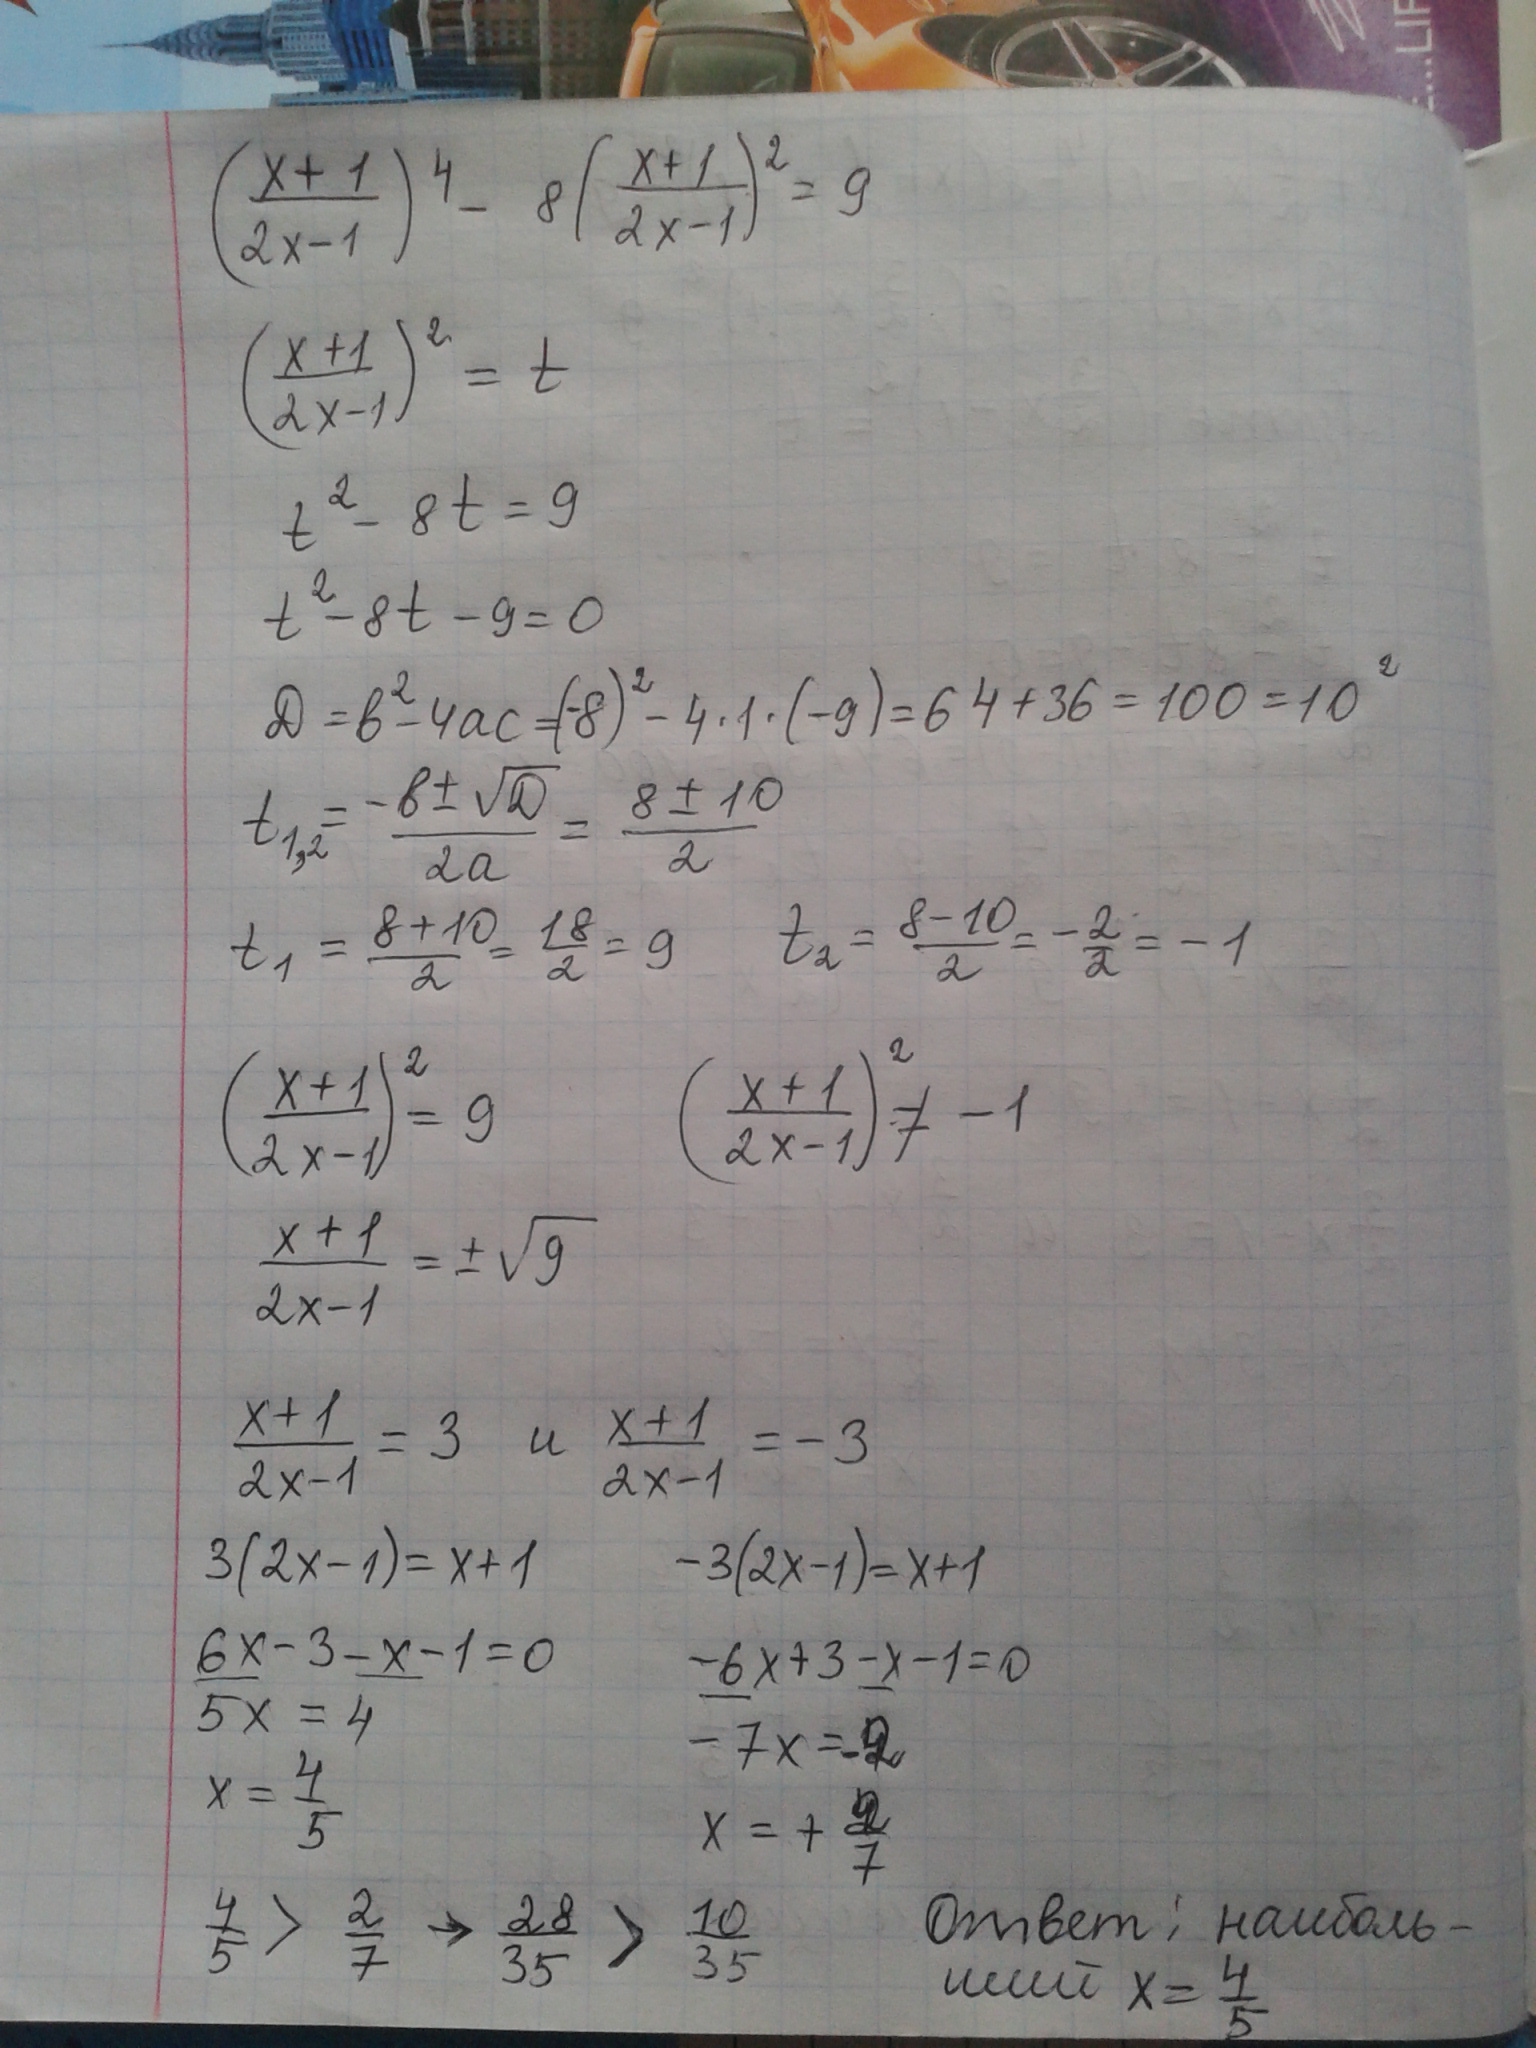 E...LIF
(x+1/2x-1)^4 - 8(x+1/2x-1)^2 = 9
(x+1/2x-1)^2 = t
t^2 - 8t = 9
t^2 - 8t - 9 = 0
D = b^2 - 4ac = (-8)^2 - 4·1·(-9) = 64 + 36 = 100 = 10^2
t1,2 = -b±√D/2a = 8±10/2
t1 = 8+10/2 = 18/2 = 9 t2 = 8-10/2 = -2/2 = -1
(x+1/2x-1)^2 = 9 (x+1/2x-1)^2 ≠ -1
x+1/2x-1 = ±√9
x+1/2x-1 = 3 и x+1/2x-1 = -3
3(2x-1) = x+1 -3(2x-1) = x+1
6x-3-x-1=0 -6x+3-x-1=0
5x = 4 -7x = -2
x = 4/5 x = + 2/7
4/5 > 2/7 → 28/35 > 10/35 Ответ: наиболь-
ший x = 4/5